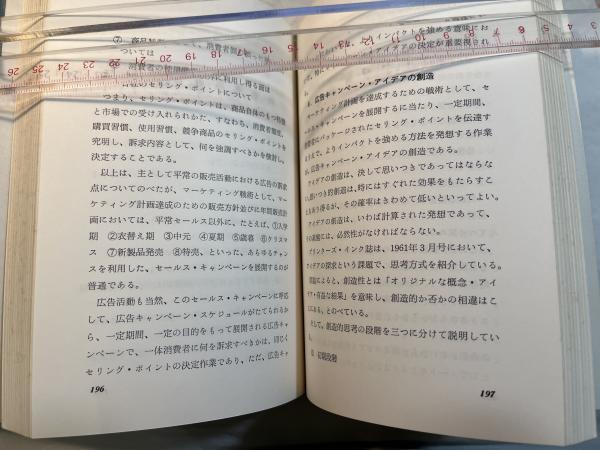 つまり、セリング・ポイントは、商品自体のもつ特徴
と市場での受け入れられかた、すなわち、消費者態度、
購買習慣、使用習慣、競争商品のセリング・ポイントを
究明し、訴求内容として、何を強調すべきかを検討し、
決定することである。
以上は、主として平常の販売活動における広告の訴求
点についてのべたが、マーケティング戦術として、マー
ケティング計画達成のための販売方針並びに年間販売計
画においては、平常セールス以外に、たとえば、①入学
期 ②衣替え期 ③中元 ④夏期 ⑤歳暮 ⑥クリスマ
ス ⑦新製品発売 ⑧特売、といった、あらゆるチャン
スを利用した、セールス・キャンペーンを展開するのが
普通である。
広告活動も当然、このセールス・キャンペーンに呼応
して、広告キャンペーン・スケジュールがたてられるか
ら、一定期間、一定の目的をもって展開される広告キャ
ンペーンで、一体消費者に何を訴求すべきかは、同じく
セリング・ポイントの決定作業であり、ただ、広告キャ
196
インパクトを強める意味にお
アイデアの決定が重要視され
広告キャンペーン・アイデアの創造
マーケティング計画を達成するための戦術として、セ
ールス・キャンペーンを展開するに当たり、一定期間、
消費者にパッケージされたセリング・ポイントを伝達す
よりインパクトを強める方法を発想する作業
広告キャンペーン・アイデアの創造である。
アイデアの創造は、決して思いつきであってはならな
思いつき的創造は、時にはすぐれた効果をもたらすこ
ともあり得るが、その確率はきわめて低いといってよい。
アイデアの創造は、いわば計算された発想であって、
その過程には、必然性がなければならない。
プリンターズ・インク誌は、1961年3月号において、
アイデアの探求という課題で、思考方式を紹介している。
によると、創造性とは「オリジナルな概念・アイ
デア・有益な結果」を意味し、創造的か否かの相違はこ
にある、とのべている。
そして、創造的思考の段階を三つに分けて説明してい
初期段階
197